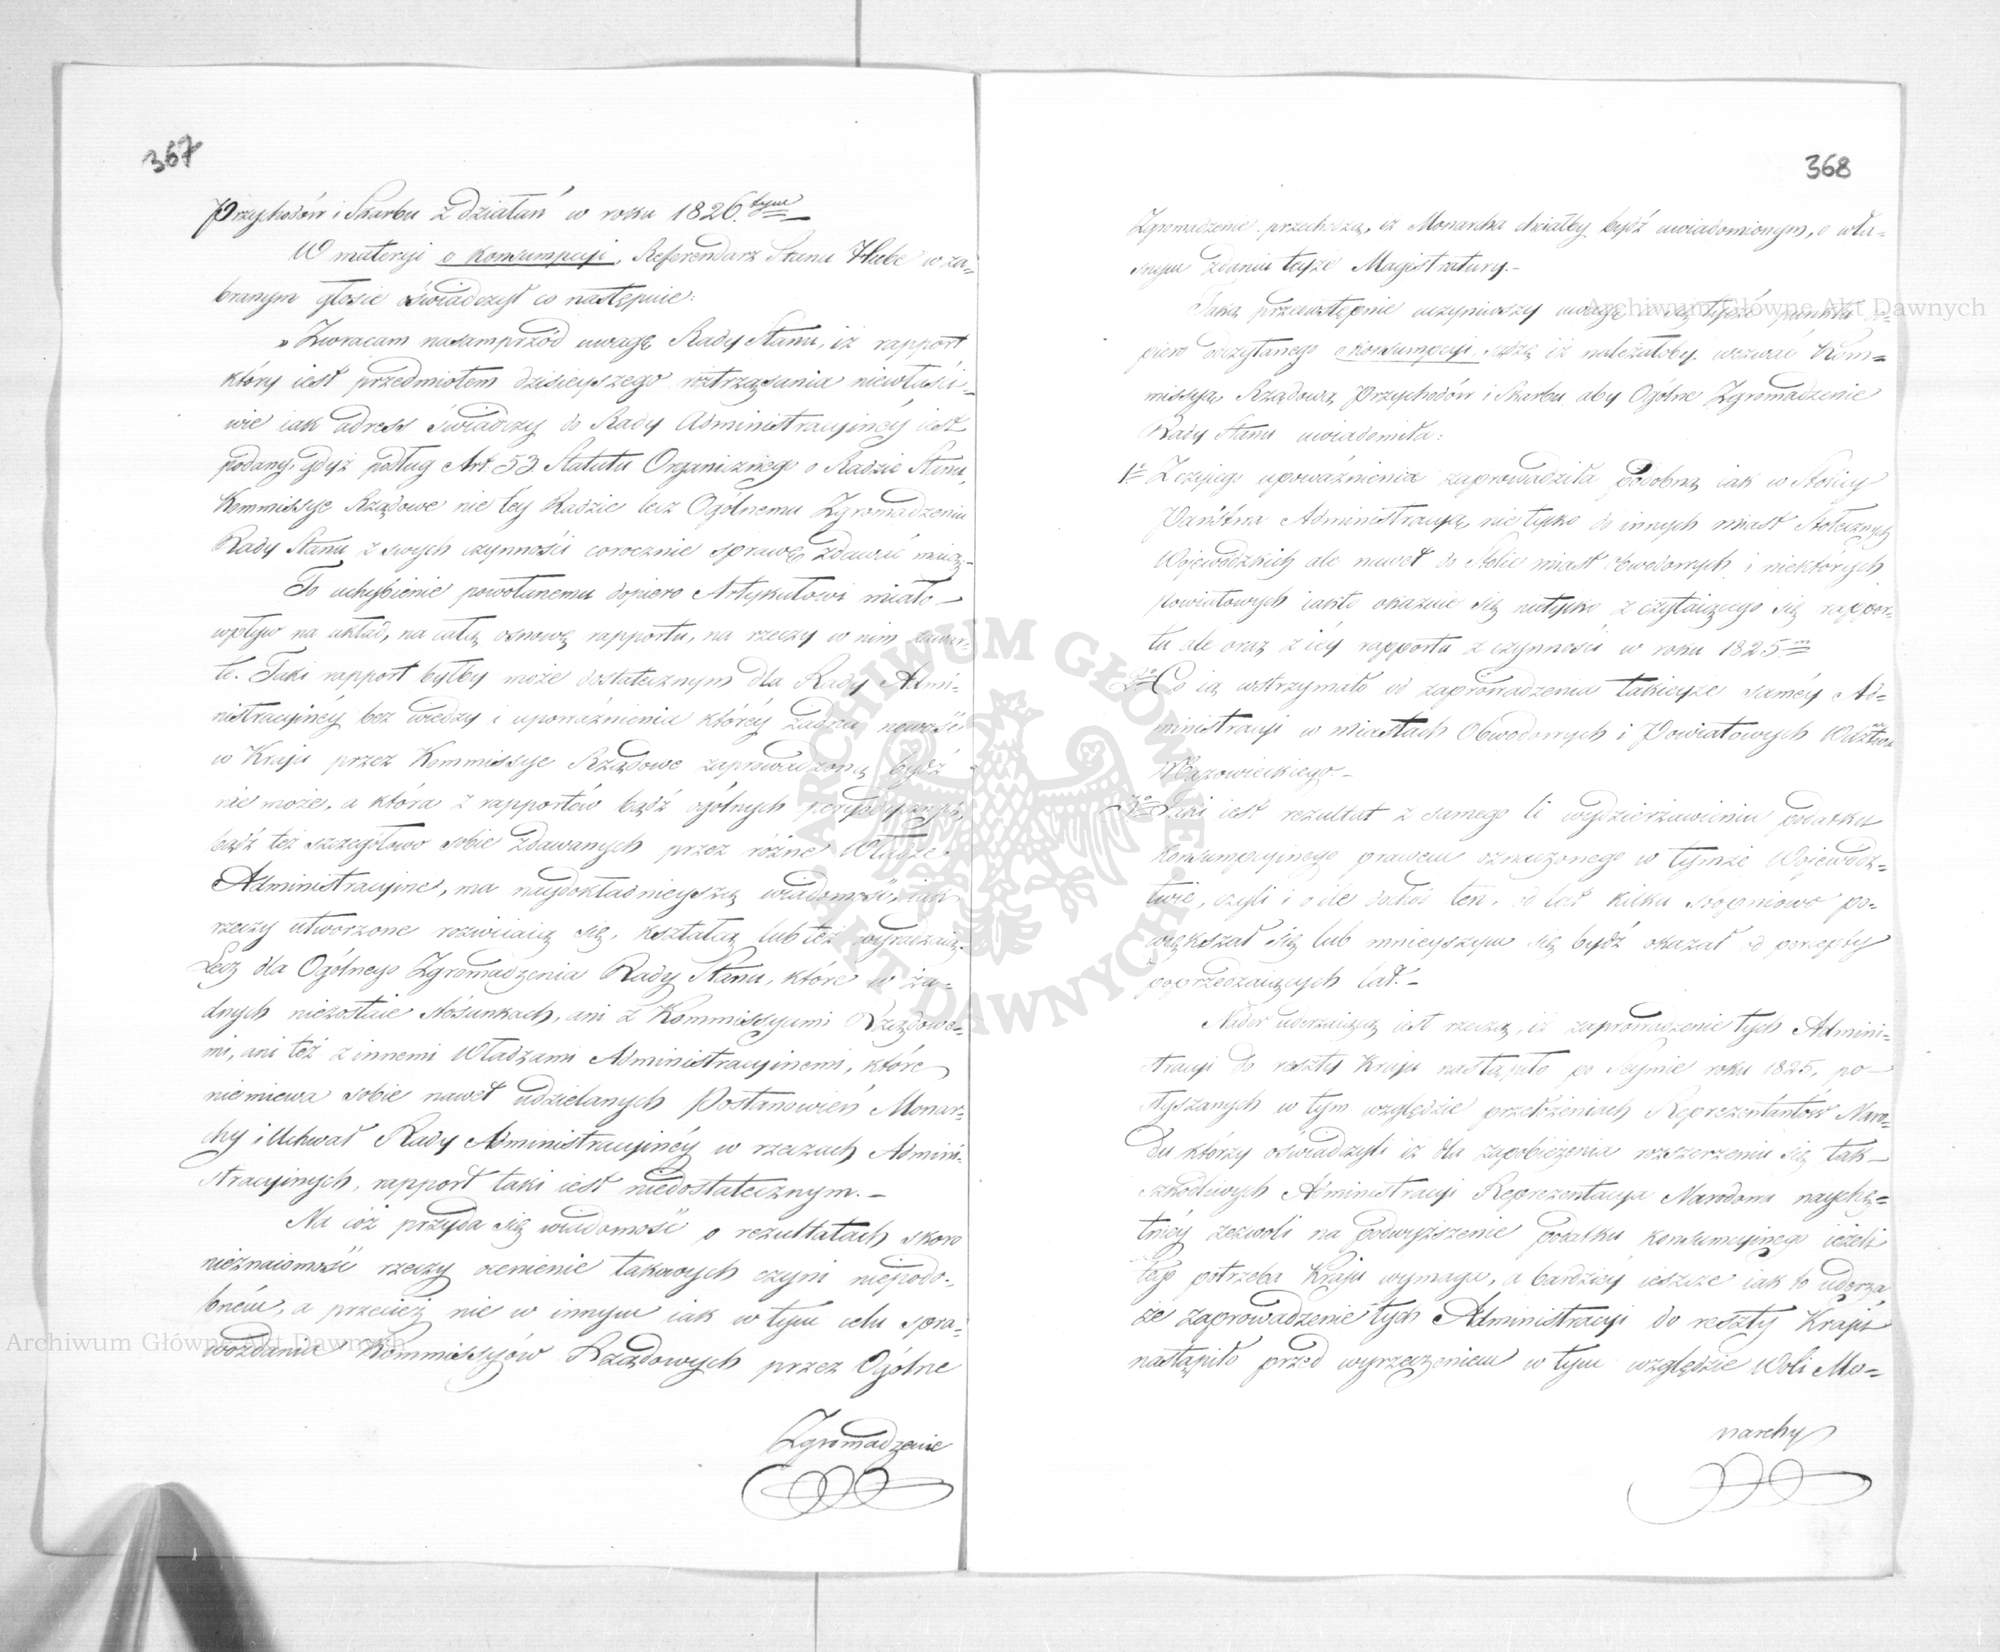 367
Przychodów i Skarbu z działań w roku 1826.tym
W materyi o konsumpcyi, Referendarz Stanu Hube w za-
branym głosie oświadczył co następuie:
"Zwracam nasamprzód uwagę Rady Stanu, iż rapport
który iest przedmiotem dzisieyszego roztrząsania niewłaści-
wie iak adress świadczy do Rady Administracyinéy iest
podany, gdyż podług Art. 53 Statutu Organicznego o Radzie Stanu,
Kommissye Rządowe nie tey Radzie lecz Ogólnemu Zgromadzeniu
Rady Stanu z swych czynności corocznie sprawę zdawać maią.-
To uchybienie powołanemu dopiero Artykułowi miało
wpływ na układ, na całą osnowę rapportu, na rzeczy w nim zawar-
te. Taki rapport byłby może dostatecznym dla Rady Admi-
nistracyinéy bez wiedzy i upoważnienia któréy żadna nowość
w Kraju przez Kommissye Rządowe zaprowadzoną bydź
nie może, a która z rapportów bądź ogólnych peryodycznych,
bądź też szczegółowo sobie zdawanych przez różne Władze
Administracyine, ma naydokładnieyszą wiadomość, iak
rzeczy utworzone rozwiiaią się, kształcą lub też wyradzaią.-
Lecz dla Ogólnego Zgromadzenia Rady Stanu, które w ża-
dnych niezostaie stósunkach, ani z Kommissyami Rządowe-
mi, ani też z innemi Władzami Administracyinemi, które
niemiewa sobie nawet udzielanych Postanowień Monar-
chy i Uchwał Rady Administracyinéy w rzeczach Admini-
stracyinych, rapport taki iest niedostatecznym.-
Na cóż przyda się wiadomość o rezultatach skoro
nieznaiomość rzeczy ocenienie takowych czyni niepodo-
bném, a przecież nie w innym iak w tym celu spra-
wozdania Kommissyów Rządowych przez Ogólne
Zgromadzenie
368
Zgromadzenie przechodzą, iż Monarcha chciałby bydź uwiadomionym, o wła-
snym zdaniu teyże Magistratury.-
Taką przedwstępnie uczyniwszy uwagę punktu do-
piero odczytanego o konsumpcyi, sądzę iż należałoby wezwać Kom-
missyą Rządową Przychodów i Skarbu aby Ogólne Zgromadzenie
Rady Stanu uwiadomiła:
1o Z czyiego upoważnienia zaprowadziła podobną iak w Stolicy
Państwa Administracyą, nie tylko do innych miast Stołecznych
Woiewódzkich ale nawet do Stolic miast Obwodowych i niektórych
Powiatowych iakto okazuie się nietylko z czytaiącego się rappor-
tu ale oraz z iéy rapportu z czynności w roku 1825m
2o Co ią wstrzymało od zaprowadzenia takieyże saméy Ad-
ministracyi w miastach Obwodowych i Powiatowych Wdztwa
Mazowieckiego.-
3o Jaki iest rezultat z samego li wydzierżawienia podatku
konsumpcyinego prawem oznaczonego w tymże Woiewódz-
twie, czyli i o ile dochód ten, od lat kilku stopniowo po-
większał się lub mnieyszym się bydź okazał od percepty
poprzedzaiących lat.-
Nader uderzaiącą iest rzeczą, iż zaprowadzenie tych Admini-
stracyi do reszty Kraju nastąpiło po Seymie roku 1825, po
słyszanych w tym względzie przełożeniach Reprezentantów Naro-
du którzy oświadczyli iż dla zapobieżenia rozszerzeniu się tak
szkodliwych Administracyi Reprezentacya Narodowa naychę-
tniéy zezwoli na podwyższenie podatku konsumcyinego ieżeli
tego potrzeba Kraju wymaga, a bardziéy ieszcze iak to uderza
że zaprowadzenie tych Administracyi do reszty Kraju
nastąpiło przed wyrzeczeniem w tym względzie Woli Mo-
narchy
Archiwum Główne Akt Dawnych
Archiwum Główne Akt Dawnych
ARCHIWUM GŁÓWNE AKT DAWNYCH